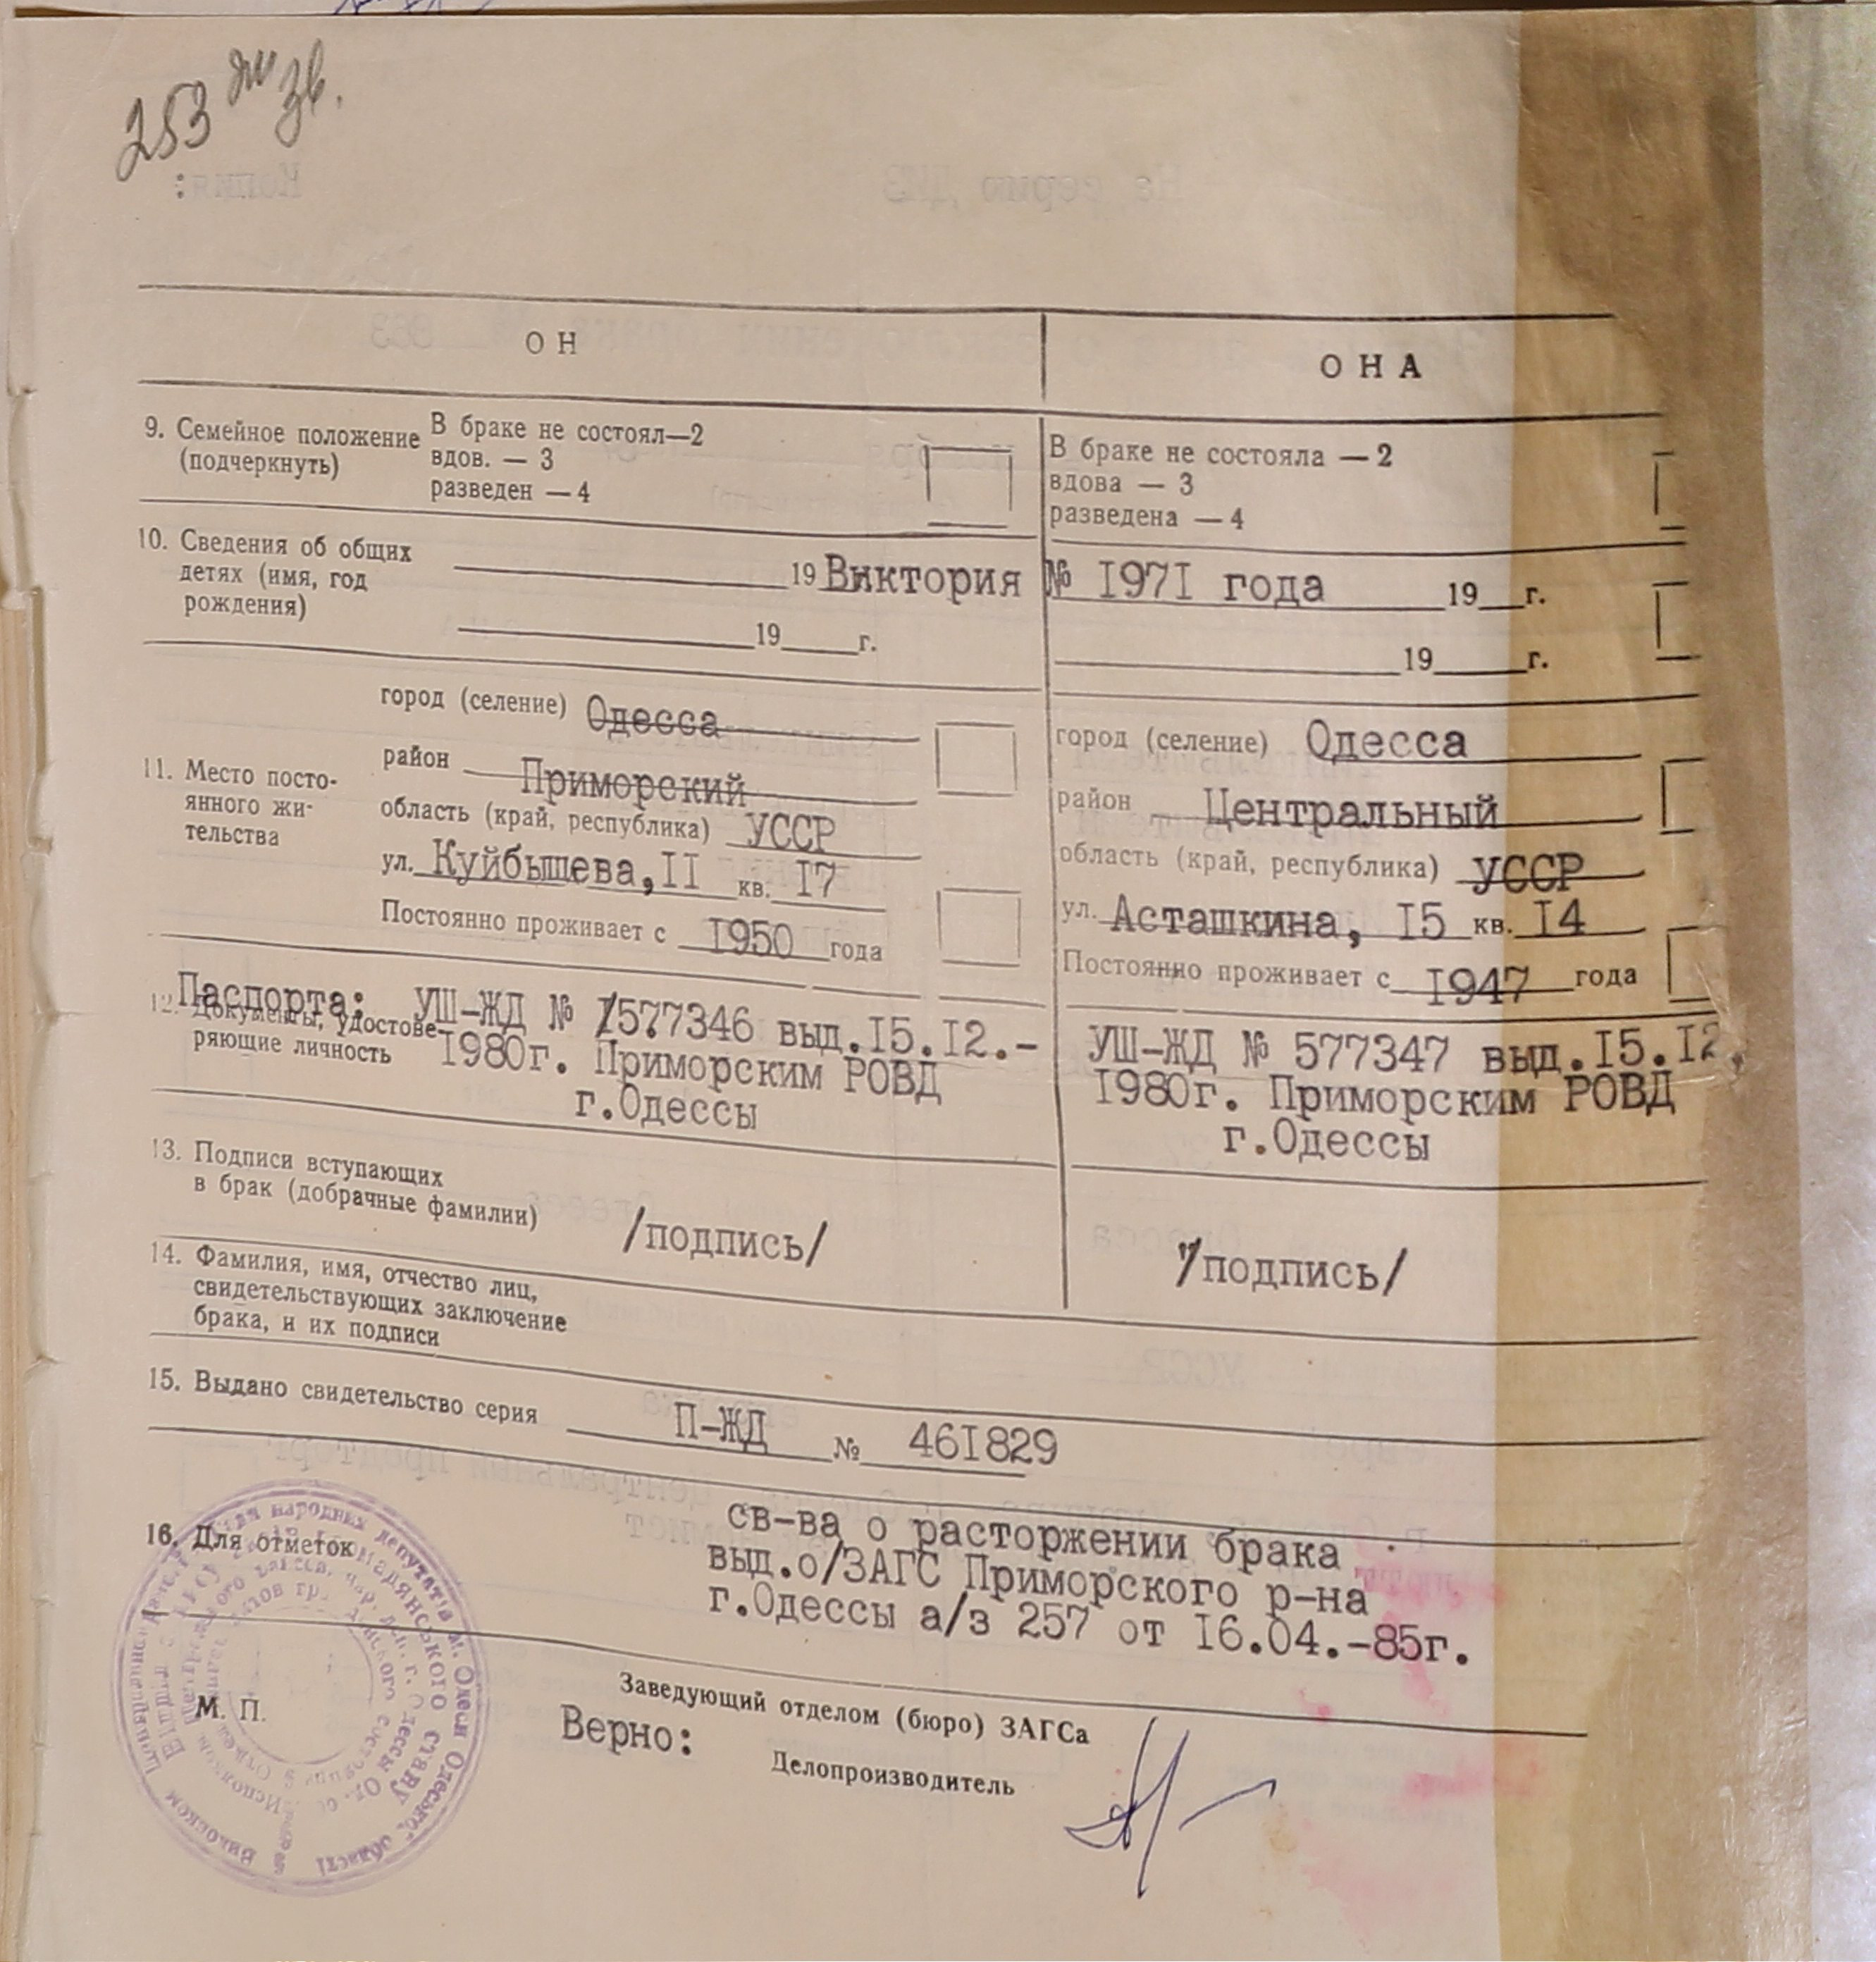 253
ОН
ОНА
9. Семейное положение
(подчеркнуть)
В браке не состоял—2
вдов. — 3
разведен — 4
В браке не состояла — 2
вдова — 3
разведена — 4
10. Сведения об общих
детях (имя, год
рождения)
19 Виктория № I97I года 19 г.
19 г.
19 г.
11. Место посто-
янного жи-
тельства
город (селение) Одесса
район Приморский
область (край, республика) УССР
ул. Куйбышева, II кв. I7
Постоянно проживает с I950 года
город (селение) Одесса
район Центральный
область (край, республика) УССР
ул. Асташкина, I5 кв. I4
Постоянно проживает с I947 года
Паспорта:
12. Документы, удостове-
ряющие личность
УШ-ЖД № 577346 выд.I5.I2.-
I980г. Приморским РОВД
г.Одессы
УШ-ЖД № 577347 выд.I5.I2.
I980г. Приморским РОВД
г.Одессы
13. Подписи вступающих
в брак (добрачные фамилии)
/подпись/
/подпись/
14. Фамилия, имя, отчество лиц,
свидетельствующих заключение
брака, и их подписи
15. Выдано свидетельство серия П-ЖД № 46I829
16. Для отметок
св-ва о расторжении брака
выд.о/ЗАГС Приморского р-на
г.Одессы а/з 257 от I6.04.-85г.
М. П.
Заведующий отделом (бюро) ЗАГСа
Верно:
Делопроизводитель